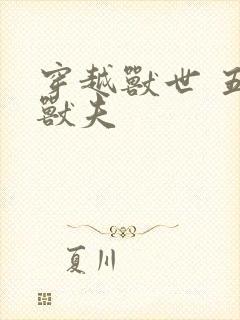 穿越獸世 五
獸夫
夏川